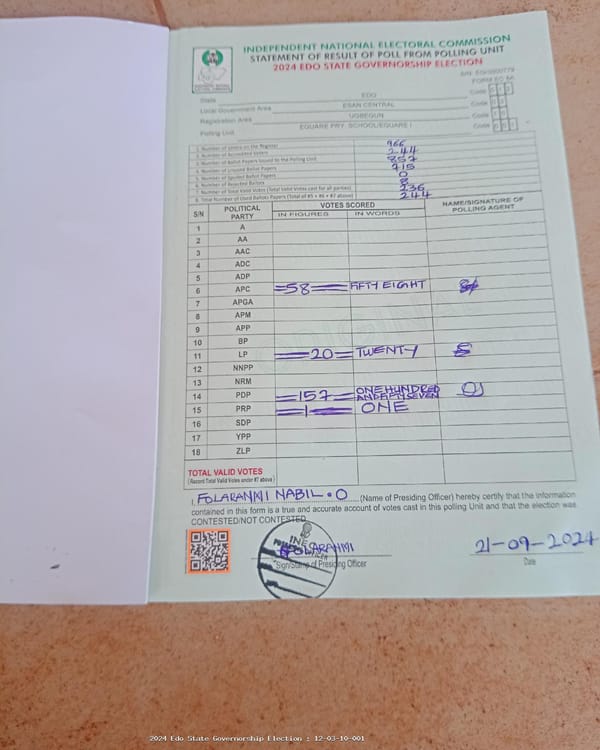 INDEPENDENT NATIONAL ELECTORAL COMMISSION
STATEMENT OF RESULT OF POLL FROM POLLING UNIT
2024 EDO STATE GOVERNORSHIP ELECTION
FORM EC 8A
State EDO Code
Local Government Area ESAN CENTRAL Code
Registration Area UGBEGUN Code
Polling Unit EGUARE PRY. SCHOOL/EGUARE I Code
1. Number of Voters on the Register 966
2. Number of Accredited Voters 244
3. Number of Ballot Papers Issued to the Polling Unit 857
4. Number of Unused Ballot Papers 715
5. Number of Spoiled Ballot Papers 0
6. Number of Rejected Ballots 8
7. Number of Total Valid Votes (Total Valid Votes cast for all parties) 236
8. Total Number of Used Ballots Papers (Total of #5 + #6 + #7 above) 244
S/N POLITICAL PARTY VOTES SCORED NAME/SIGNATURE OF POLLING AGENT
IN FIGURES IN WORDS
1 A
2 AA
3 AAC
4 ADC
5 ADP
6 APC =58= FIFTY EIGHT
7 APGA
8 APM
9 APP
10 BP
11 LP =20= TWENTY
12 NNPP
13 NRM
14 PDP =157= ONE HUNDRED AND FIFTY SEVEN
15 PRP =1= ONE
16 SDP
17 YPP
18 ZLP
TOTAL VALID VOTES
(Record Total Valid Votes under #7 above)
I, FOLARANMI NABIL.O (Name of Presiding Officer) hereby certify that the information
contained in this form is a true and accurate account of votes cast in this polling Unit and that the election was
CONTESTED/NOT CONTESTED
INEC
FOLARANMI 21-09-2024
Sign/Stamp of Presiding Officer Date
2024 Edo State Governorship Election : 12-03-10-001